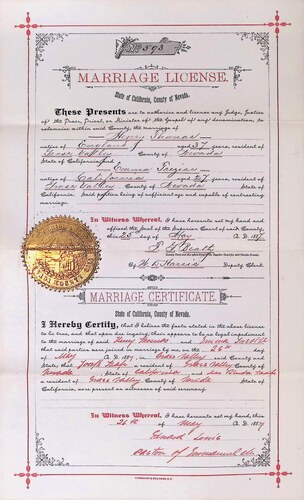 No 593
MARRIAGE LICENSE.
State of California, County of Nevada.
These Presents are to authorize and license any Judge, Justice
of the Peace, Priest, or Minister of the Gospel of any denomination, to
solemnize within said County, the marriage of
Henry Thomas
native of England, aged 37 years, resident of
Grass Valley County of Nevada
State of California, and
Emma
native of California aged 27 years, resident of
Grass Valley County of Nevada
State of California. Said parties being of sufficient age and capable of contracting
marriage.
In Witness Whereof, I have hereunto set my hand and
affixed the Seal of the Superior Court of said County,
this 25 day of May A. D. 1897
County Clerk and Ex-officio Clerk of the Superior Court in and for said Nevada County.
By Deputy Clerk.
MARRIAGE CERTIFICATE.
State of California, County of Nevada.
I Hereby Certify, that I believe the facts stated in the above license
to be true, and that upon due inquiry, there appears to be no legal impediment
to the marriage of said Henry Thomas and Emma
that said parties were joined in marriage by me, on the 26th day of
May A. D. 1897, in Grass Valley, said County and
State; that Joseph a resident of Grass Valley
Nevada State of California and
a resident of Grass Valley County of Nevada State of
California, were present as witnesses of said ceremony.
In Witness Whereof, I have hereunto set my hand, this
26th day of May A. D. 1897
Lewis
Pastor of